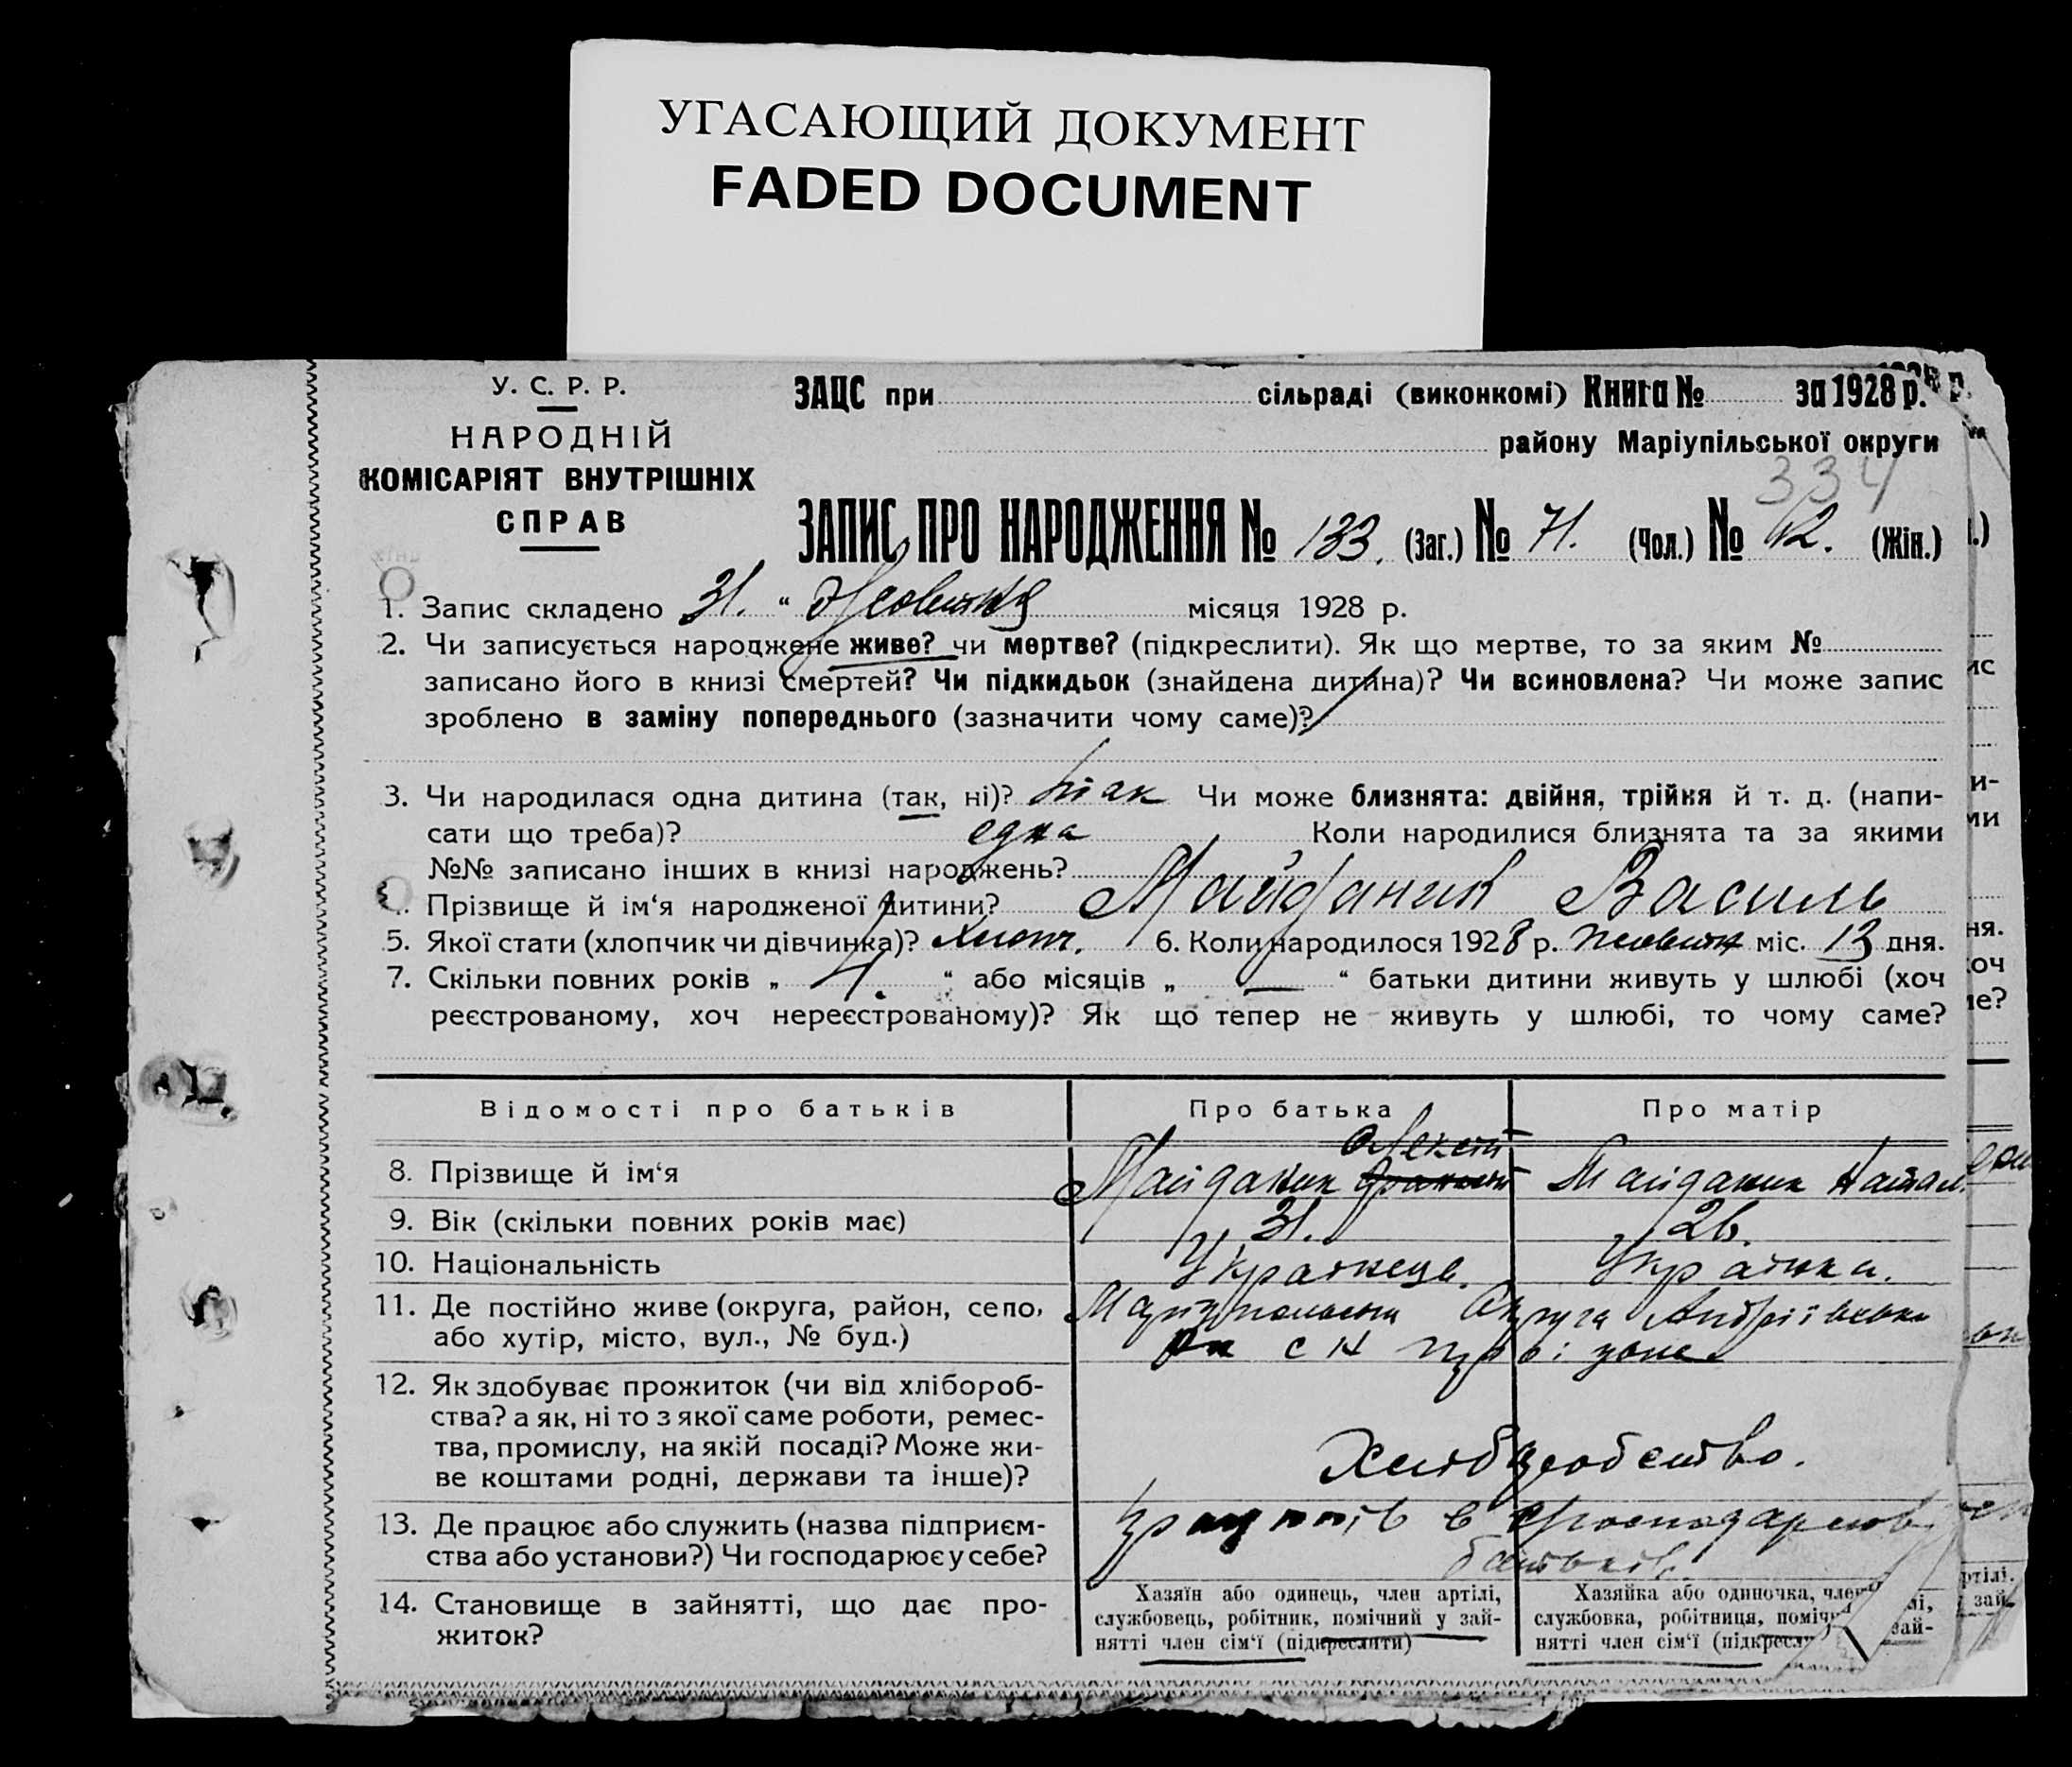 УГАСАЮЩИЙ ДОКУМЕНТ
FADED DOCUMENT
У. С. Р. Р.
НАРОДНІЙ
КОМІСАРІЯТ ВНУТРІШНІХ
СПРАВ
ЗАЦС при сільраді (виконкомі) Книга № за 1928 р.
району Маріупільської округи
334
ЗАПИС ПРО НАРОДЖЕННЯ № 133. (Заг.) № 71. (Чол.) № 62. (Жін.)
1. Запис складено 31. “ Жовтня місяця 1928 р.
2. Чи записується народжене живе? чи мертве? (підкреслити). Як що мертве, то за яким №
записано його в книзі смертей? Чи підкидьок (знайдена дитина)? Чи всиновлена? Чи може запис
зроблено в заміну попереднього (зазначити чому саме)?
3. Чи народилася одна дитина (так, ні)? так Чи може близнята: двійня, трійня й т. д. (напи-
сати що треба)? една Коли народилися близнята та за якими
№№ записано інших в книзі народжень?
Прізвище й ім‘я народженої дитини? Майданик Василь
5. Якої стати (хлопчик чи дівчинка)? хлопч. 6. Коли народилося 1928 р. жовтн міс. 13 дня.
7. Скільки повних років „ “ або місяців „ — “ батьки дитини живуть у шлюбі (хоч
реєстрованому, хоч нереєстрованому)? Як що тепер не живуть у шлюбі, то чому саме?
Відомості про батьків Про батька Про матір
8. Прізвище й ім‘я Майданик Майданик Натал.
9. Вік (скільки повних років має) 31. 26.
10. Національність Українець. Українка.
11. Де постійно живе (округа, район, село, Округа Андріївськ
або хутір, місто, вул., № буд.) рн с н
12. Як здобуває прожиток (чи від хлібороб-
ства? а як, ні то з якої саме роботи, ремес-
тва, промислу, на якій посаді? Може жи-
ве коштами родні, держави та інше)? Хліборобство.
13. Де працює або служить (назва підприєм- в господарств
ства або установи?) Чи господарює у себе? батьків.
14. Становище в зайнятті, що дає про-
житок?
Хазяїн або одинець, член артілі,
службовець, робітник, помічний у зай-
нятті член сім‘ї (підкреслити)
Хазяйка або одиночка, член
службовка, робітниця, поміч зай-
нятті член сім‘ї (підкресл